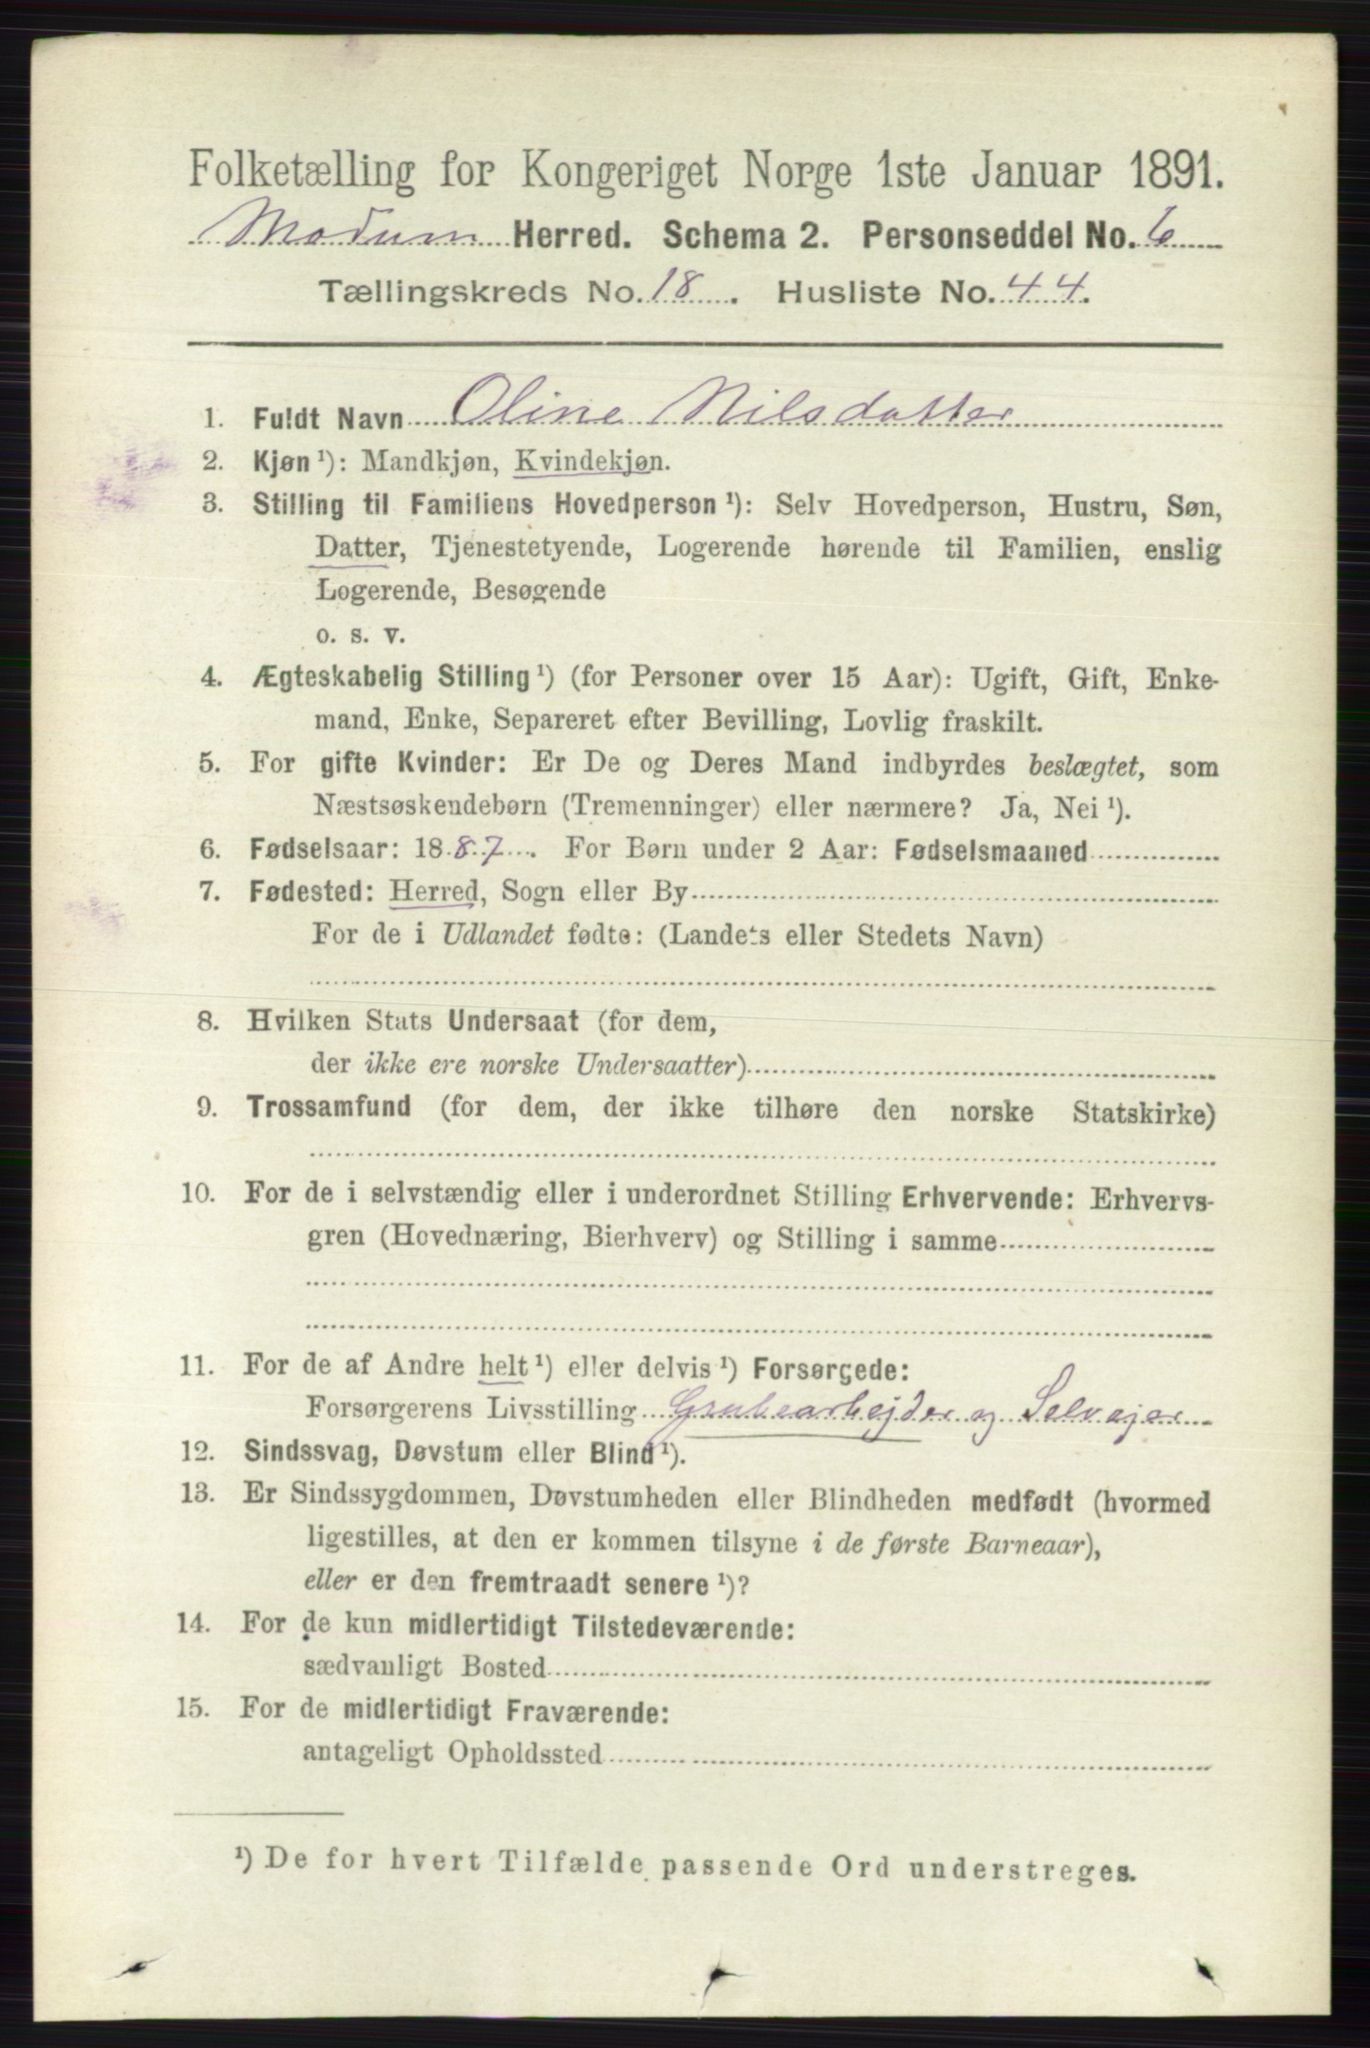 Folketælling for Kongeriget Norge 1ste Januar 1891.
Modum Herred. Schema 2. Personseddel No. 6
Tællingskreds No. 18. Husliste No. 44.
1. Fuldt Navn Oline Nilsdatter
2. Kjøn ¹): Mandkjøn, Kvindekjøn.
3. Stilling til Familiens Hovedperson ¹): Selv Hovedperson, Hustru, Søn,
Datter, Tjenestetyende, Logerende hørende til Familien, enslig
Logerende, Besøgende
o. s. v.
4. Ægteskabelig Stilling ¹) (for Personer over 15 Aar): Ugift, Gift, Enke-
mand, Enke, Separeret efter Bevilling, Lovlig fraskilt.
5. For gifte Kvinder: Er De og Deres Mand indbyrdes beslægtet, som
Næstsøskendebørn (Tremenninger) eller nærmere? Ja, Nei ¹).
6. Fødselsaar: 1887. For Børn under 2 Aar: Fødselsmaaned
7. Fødested: Herred, Sogn eller By
For de i Udlandet fødte: (Landets eller Stedets Navn)
8. Hvilken Stats Undersaat (for dem,
der ikke ere norske Undersaatter)
9. Trossamfund (for dem, der ikke tilhøre den norske Statskirke)
10. For de i selvstændig eller i underordnet Stilling Erhvervende: Erhvervs-
gren (Hovednæring, Bierhverv) og Stilling i samme
11. For de af Andre helt ¹) eller delvis ¹) Forsørgede:
Forsørgerens Livsstilling Grubearbejder og Selvejer
12. Sindssvag, Døvstum eller Blind ¹).
13. Er Sindssygdommen, Døvstumheden eller Blindheden medfødt (hvormed
ligestilles, at den er kommen tilsyne i de første Barneaar),
eller er den fremtraadt senere ¹)?
14. For de kun midlertidigt Tilstedeværende:
sædvanligt Bosted
15. For de midlertidigt Fraværende:
antageligt Opholdssted
¹) De for hvert Tilfælde passende Ord understreges.